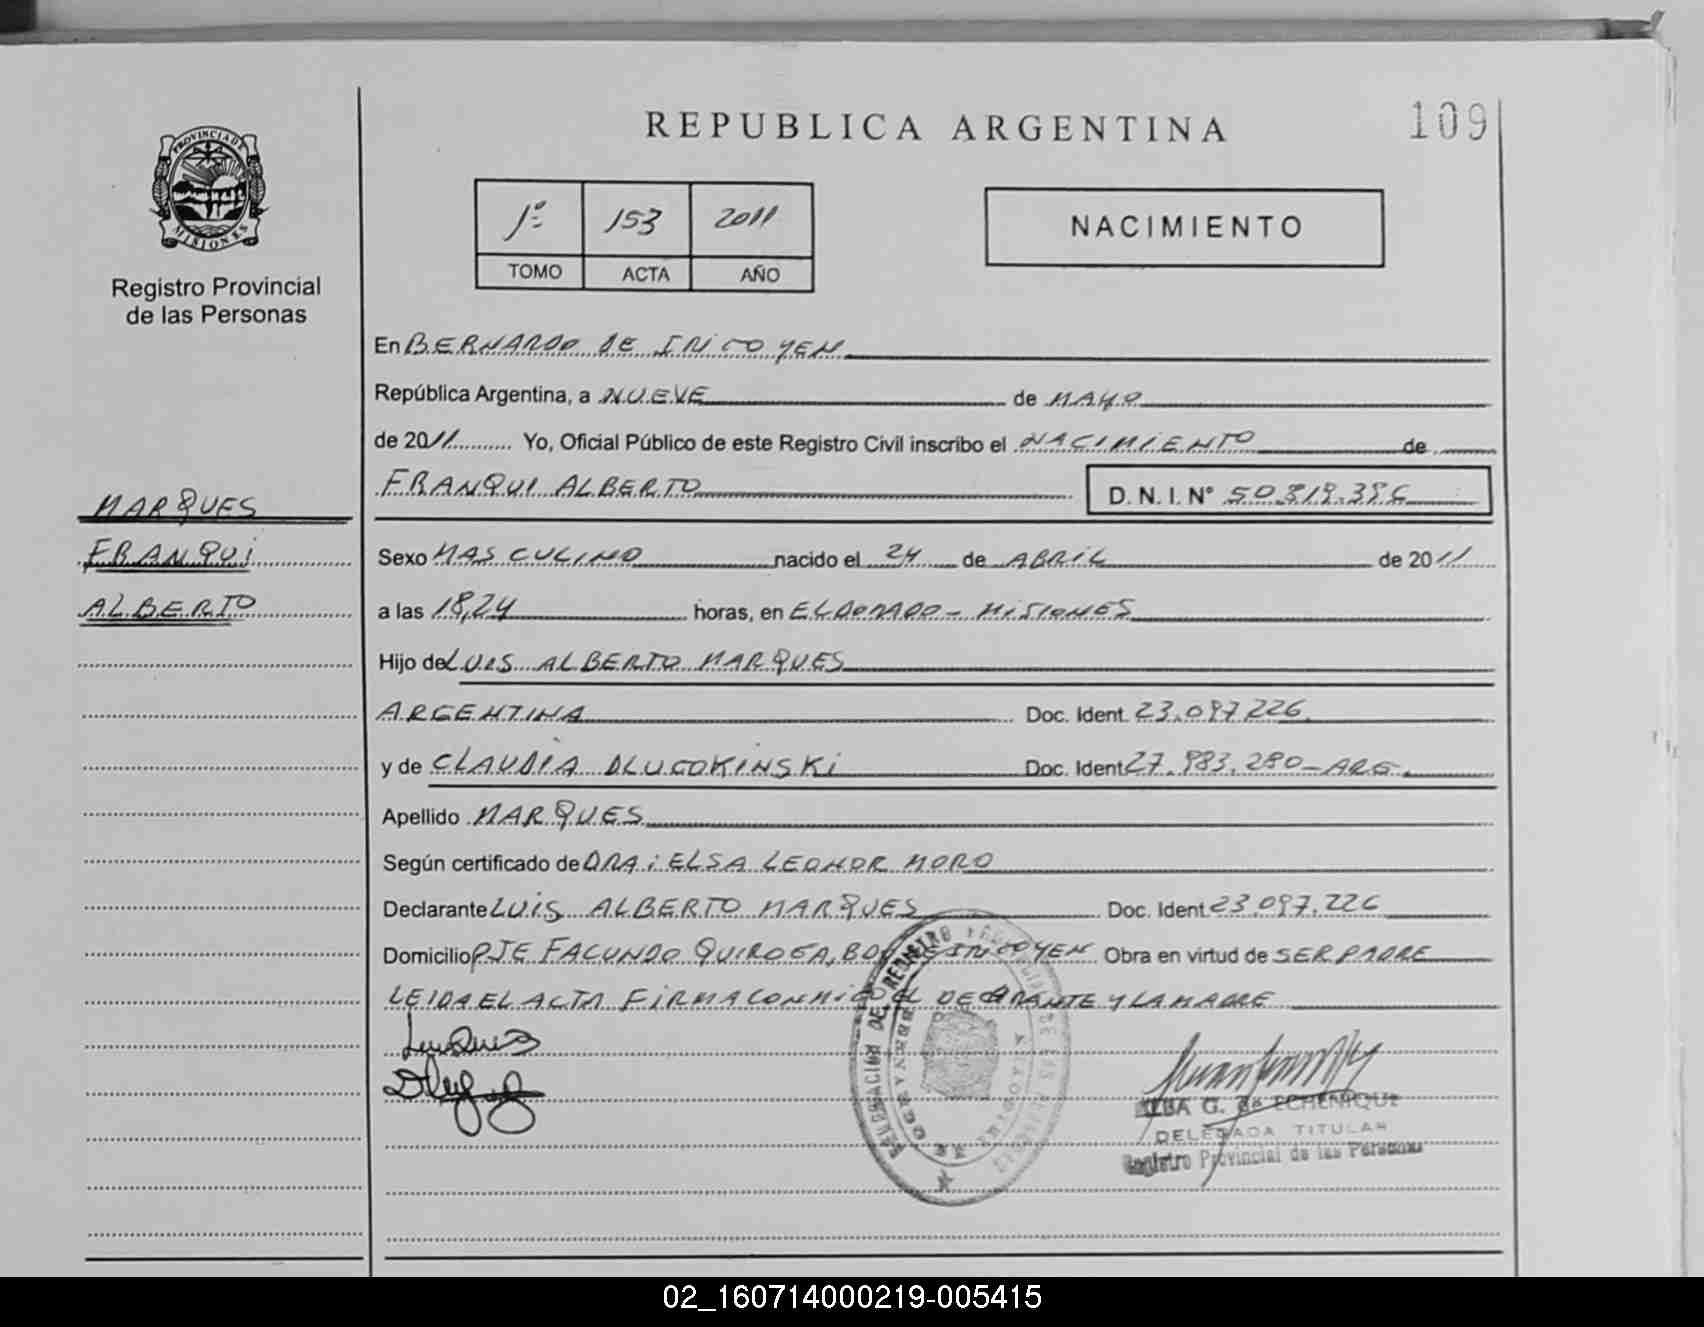 REPUBLICA ARGENTINA
109
PROVINCIA DE MISIONES
Registro Provincial
de las Personas
1º 153 2011
TOMO ACTA AÑO
NACIMIENTO
En BERNARDO DE IRIGOYEN
República Argentina, a NUEVE de MAYO
de 2011 Yo, Oficial Público de este Registro Civil inscribo el NACIMIENTO de
FRANQUI ALBERTO D. N. I. Nº
MARQUES
FRANQUI
ALBERTO
Sexo MASCULINO nacido el 24 de ABRIL de 2011
a las 18,24 horas, en ELDORADO - MISIONES
Hijo de LUIS ALBERTO MARQUES
ARGENTINA Doc. Ident. 23.097.226
y de CLAUDIA DLUGOKINSKI Doc. Ident. ARG.
Apellido MARQUES
Según certificado de DRA: ELSA LEONOR MORO
Declarante LUIS ALBERTO MARQUES Doc. Ident 23.097.226
Domicilio PJE FACUNDO QUIROGA, BDO DE IRIGOYEN Obra en virtud de SER PADRE
LEIDA EL ACTA FIRMA CONMIGO EL DECLARANTE Y LA MADRE
ELBA G. de ECHENIQUE
DELEGADA TITULAR
Registro Provincial de las Personas
02_160714000219-005415